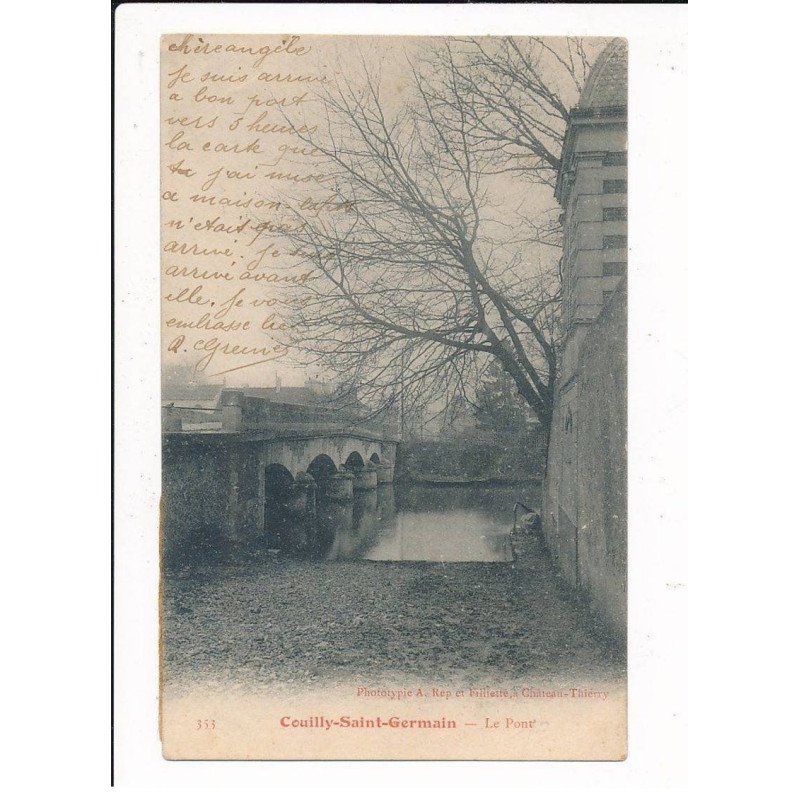 chère angèle
Je suis arrivé
a bon port
vers 5 heures
la carte que
j'ai mise
a maison
n'etait pas
arrivé. Je suis
arrivé avant
elle. Je vous
embrasse
Phototypie A. Rep et Filliette, à Chateau-Thierry
353 Couilly-Saint-Germain — Le Pont